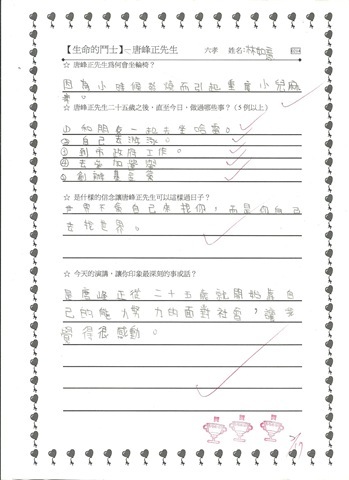 【生命的鬥士】─唐峰正先生 六孝 姓名:林
☆ 唐峰正先生為何會坐輪椅?
因為小時候發燒而引起重度小兒麻
痺。
☆ 唐峰正先生二十五歲之後,直至今日,做過哪些事?(5 例以上)
① 和朋友一起去坐
② 自己去游泳。
③ 到市政府工作。
④ 去參加
⑤ 創辦基金會
☆ 是什樣的信念讓唐峰正先生可以這樣過日子?
世界不會自己來找你,而是你自己
去找世界。
☆ 今天的演講,讓你印象最深刻的事或話?
是唐峰正從二十五歲就開始靠自
己的能力努力的面對社會,讓我
覺得很感動。